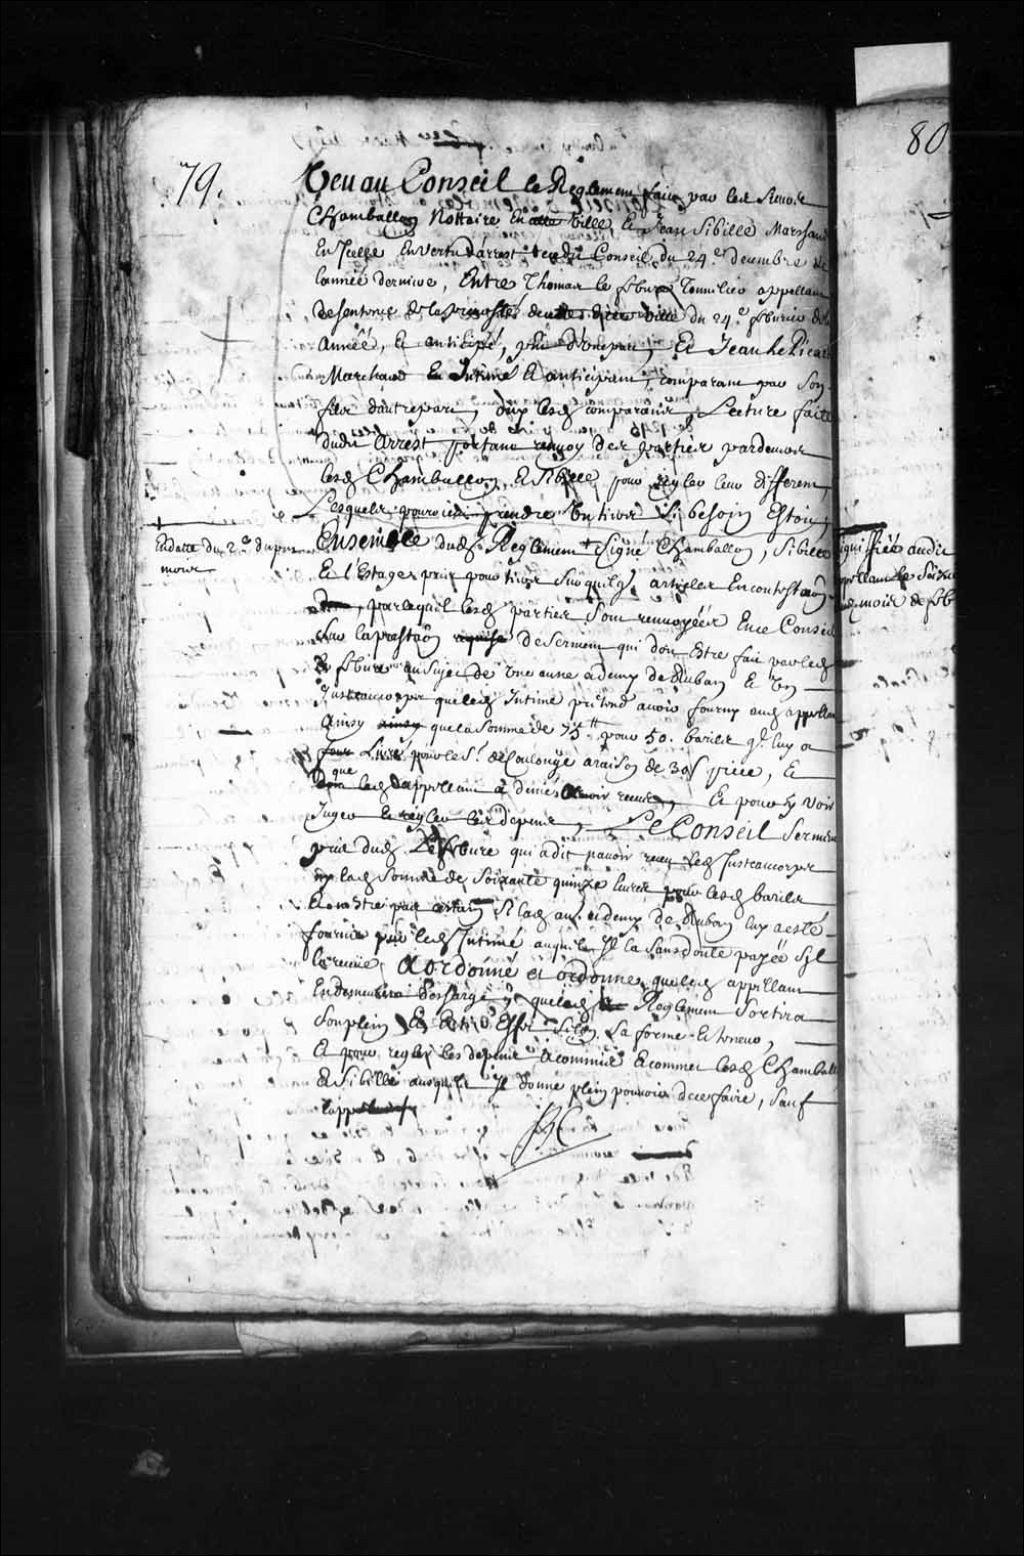 79.
80
Veu au Conseil le Reglement faict par les Sieurs
Chamballon Nottaire en cette ville, et Jean Sibille Marchand
en Icelle en vertu d'arrest du Conseil du 24.e decembre de
l'année derniere, Entre Thomas le febure Tonnellier appellant
de sentence de la Prevosté de cette ville du 24.e feburier
année, et anticipé, d'une part, Et Jean Le Picard
Marchand Intimé Et anticipant, comparant par son
filz d'autre part, ouy lesd comparans, Lecture faite
dudit Arrest portant renvoy des parties pardevant
lesd Chamballon, et Sibille pour regler leur different,
Lesquels pouroient prendre un tiers si besoin Estoit,
Ensemble dud Reglement + Signé Chamballon, Sibille
en datte du 2.e du present
mois
Et l'Estage pris pour tiers sur quelqs articles en contestaõn
par lequel lesd parties sont renvoyées en ce Conseil
sur la prestaõn de serment qui doit Estre fait par led
le febure au sujet de une aune et demy de Ruban Et un
Justeaucorps que led Intimé pretend avoir fourny aud appellant
Ainsy que la somme de 75.tt pour 50. barils q.l luy a
Livré pour le S.r de Coulonge a raison de 30s piece, Et
que led appellant a denié avoir receu, Et pour sy voir
Juger et regler les depens, Le Conseil serment
pris dud Le febure qui a dit n'avoir receu led Justeaucorps
ny lad somme de soixante quinze livres pour lesd barils
Et n'estre pas certain si lad aune et demy de Ruban luy a esté
fournie par led Intimé auquel Il la sans doute payée s'il
l'a receüe, A ordonné et ordonne que led appellant
En demeurera deschargé et que led Reglement sortira
son plein Et Entier Effet selon sa forme Et teneur,
Et pour regler les depens A commis et commet lesd Chamballon
Et Sibille ausquels Il donne plein pouvoir de ce faire, sauf
l'appel
signiffiée audit
appellant le
mois de feb